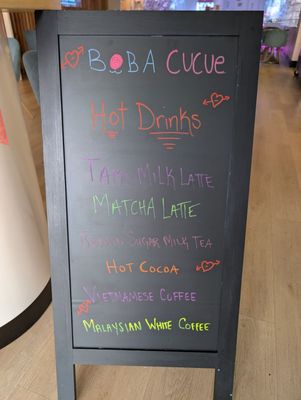 BOBA CUCUE
Hot Drinks
Taro Milk Latte
Matcha Latte
Brown Sugar Milk Tea
Hot Cocoa
Vietnamese Coffee
Malaysian White Coffee